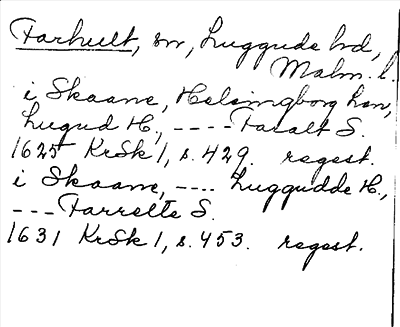 Farhult, sn, Luggude hd,
Malm. l.
i Skaane, Helsingborg Len,
Lugud H., ---- Faralt S.
1625 KrSk 1, s. 429. regest.
i Skaane, ---- Luggudde H.,
--- Farrelte S.
1631 KrSk 1, s. 453. regest.